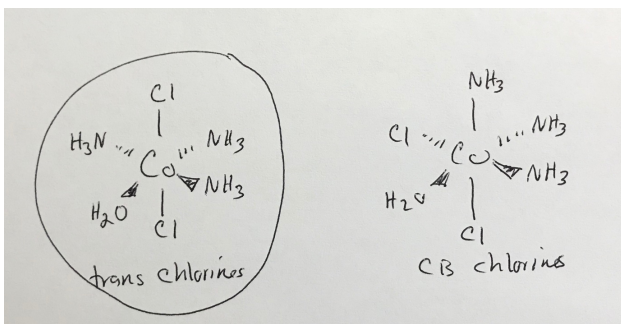 Cl
H₃N Co NH₃
NH₃
H₂O
Cl
trans chlorines
NH₃
Cl Co NH₃
NH₃
H₂O
Cl
CB chlorines